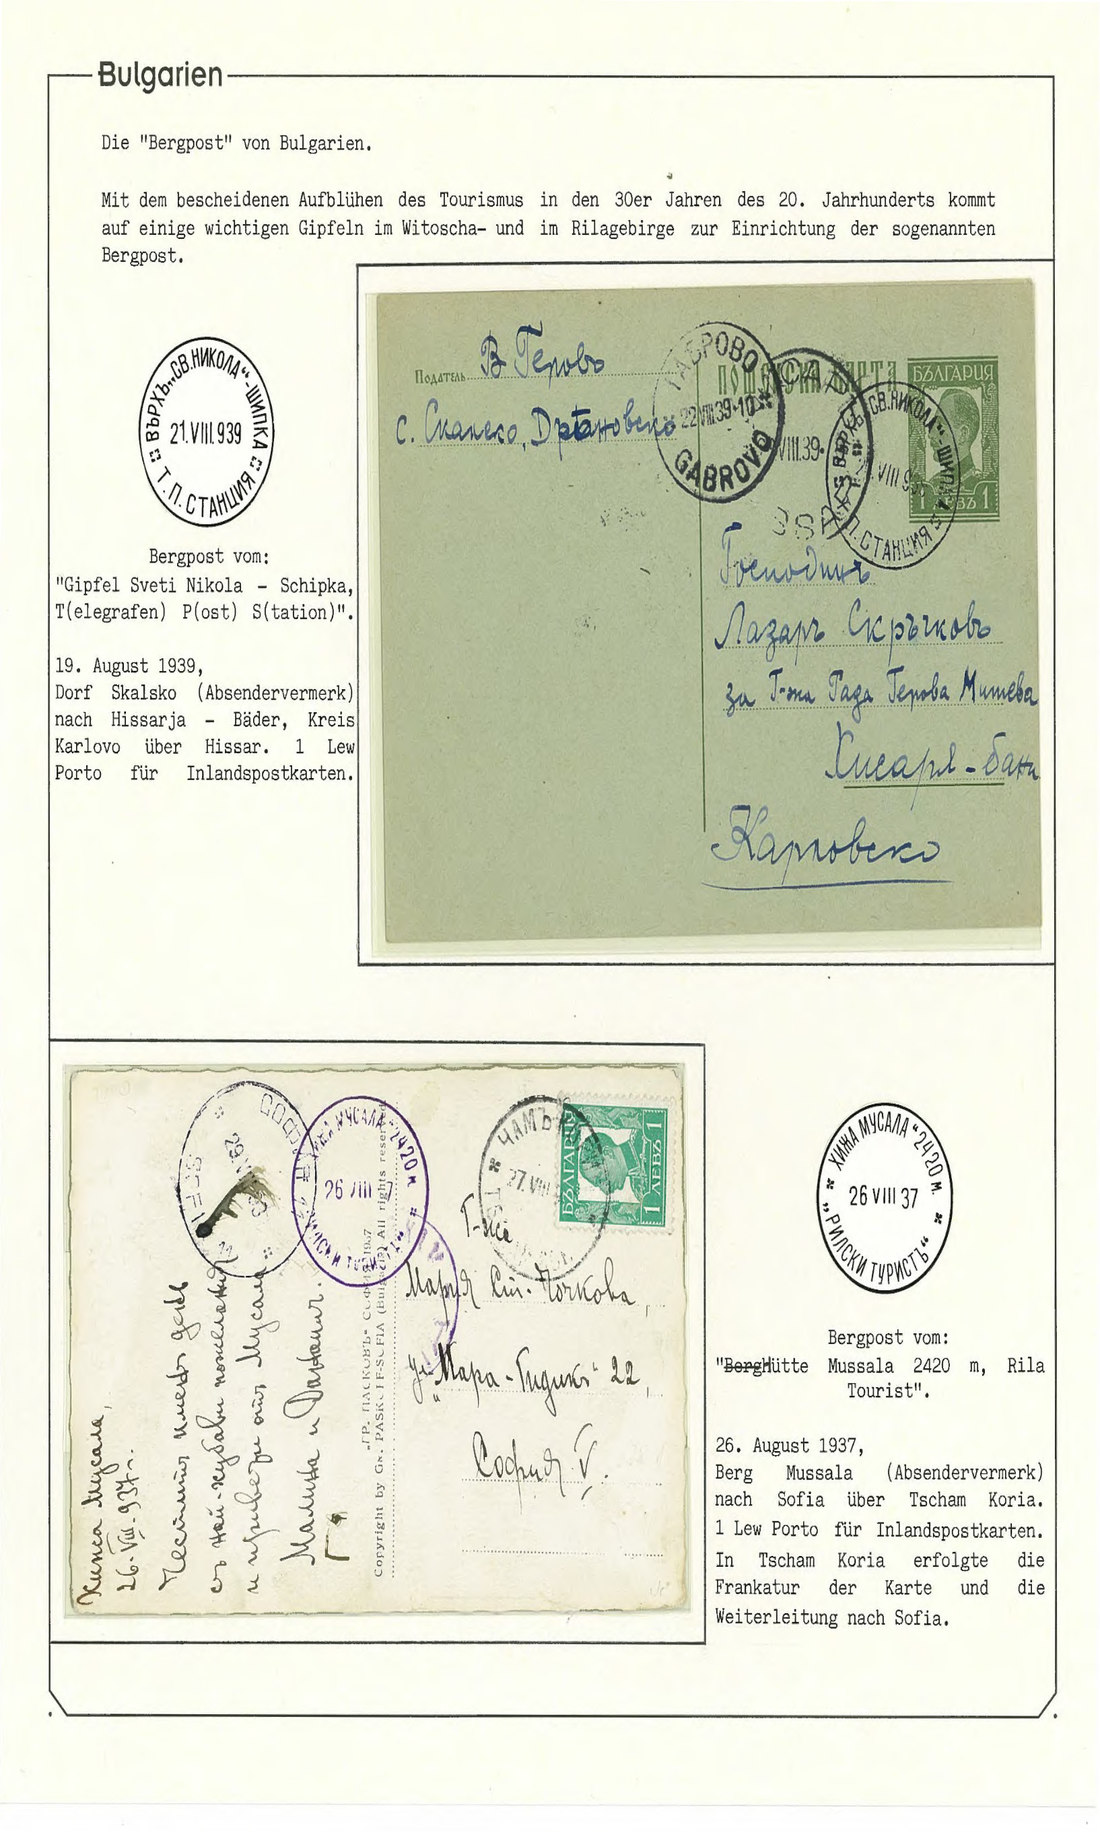 Bulgarien
Die "Bergpost" von Bulgarien.
Mit dem bescheidenen Aufblühen des Tourismus in den 30er Jahren des 20. Jahrhunderts kommt
auf einige wichtigen Gipfeln im Witoscha- und im Rilagebirge zur Einrichtung der sogenannten
Bergpost.
ВЪРХЪ „СВ.НИКОЛА“-ШИПКА
21.VIII.939
Т.П.СТАНЦИЯ
Bergpost vom:
"Gipfel Sveti Nikola - Schipka,
T(elegrafen) P(ost) S(tation)".
19. August 1939,
Dorf Skalsko (Absendervermerk)
nach Hissarja - Bäder, Kreis
Karlovo über Hissar. 1 Lew
Porto für Inlandspostkarten.
Податель В Геровъ
с. Скалско, Дрѣновско
ГАБРОВО
22.VIII.39-10
GABROVO
ПОЩЕНСКА КАРТА
VIII.39
СВ.НИКОЛА“-ШИПКА
VIII 9
П.СТАНЦИЯ
БЪЛГАРИЯ
1 ЛЕВЪ 1
Господинъ
Лазаръ Скръчковъ
за Г-жа Рада Герова Митева
Хисаря - бани
Карловско
МУСАЛА “2420 м.
26 VIII
ЧАМЪ
27.VIII
БЪЛГАРИЯ
1 ЛЕВЪ 1
Г-жа
Мария Ст. Почкова,
ул. „Мара-Гидикъ“ 22,
София V.
„ГР. ПАСКОВЪ“ СОФИЯ 1937
Copyright by GR. PASKOFF SOFIA (Bulgarie) All rights reserved
Хижа Мусала,
26.VIII.937 г.
Честитъ именъ день
съ най-хубави пожелания
и привети отъ Мусала
Малина и
ХИЖА МУСАЛА “2420 м.
26 VIII 37
„РИЛСКИ ТУРИСТЪ“
Bergpost vom:
"BergHütte Mussala 2420 m, Rila
Tourist".
26. August 1937,
Berg Mussala (Absendervermerk)
nach Sofia über Tscham Koria.
1 Lew Porto für Inlandspostkarten.
In Tscham Koria erfolgte die
Frankatur der Karte und die
Weiterleitung nach Sofia.